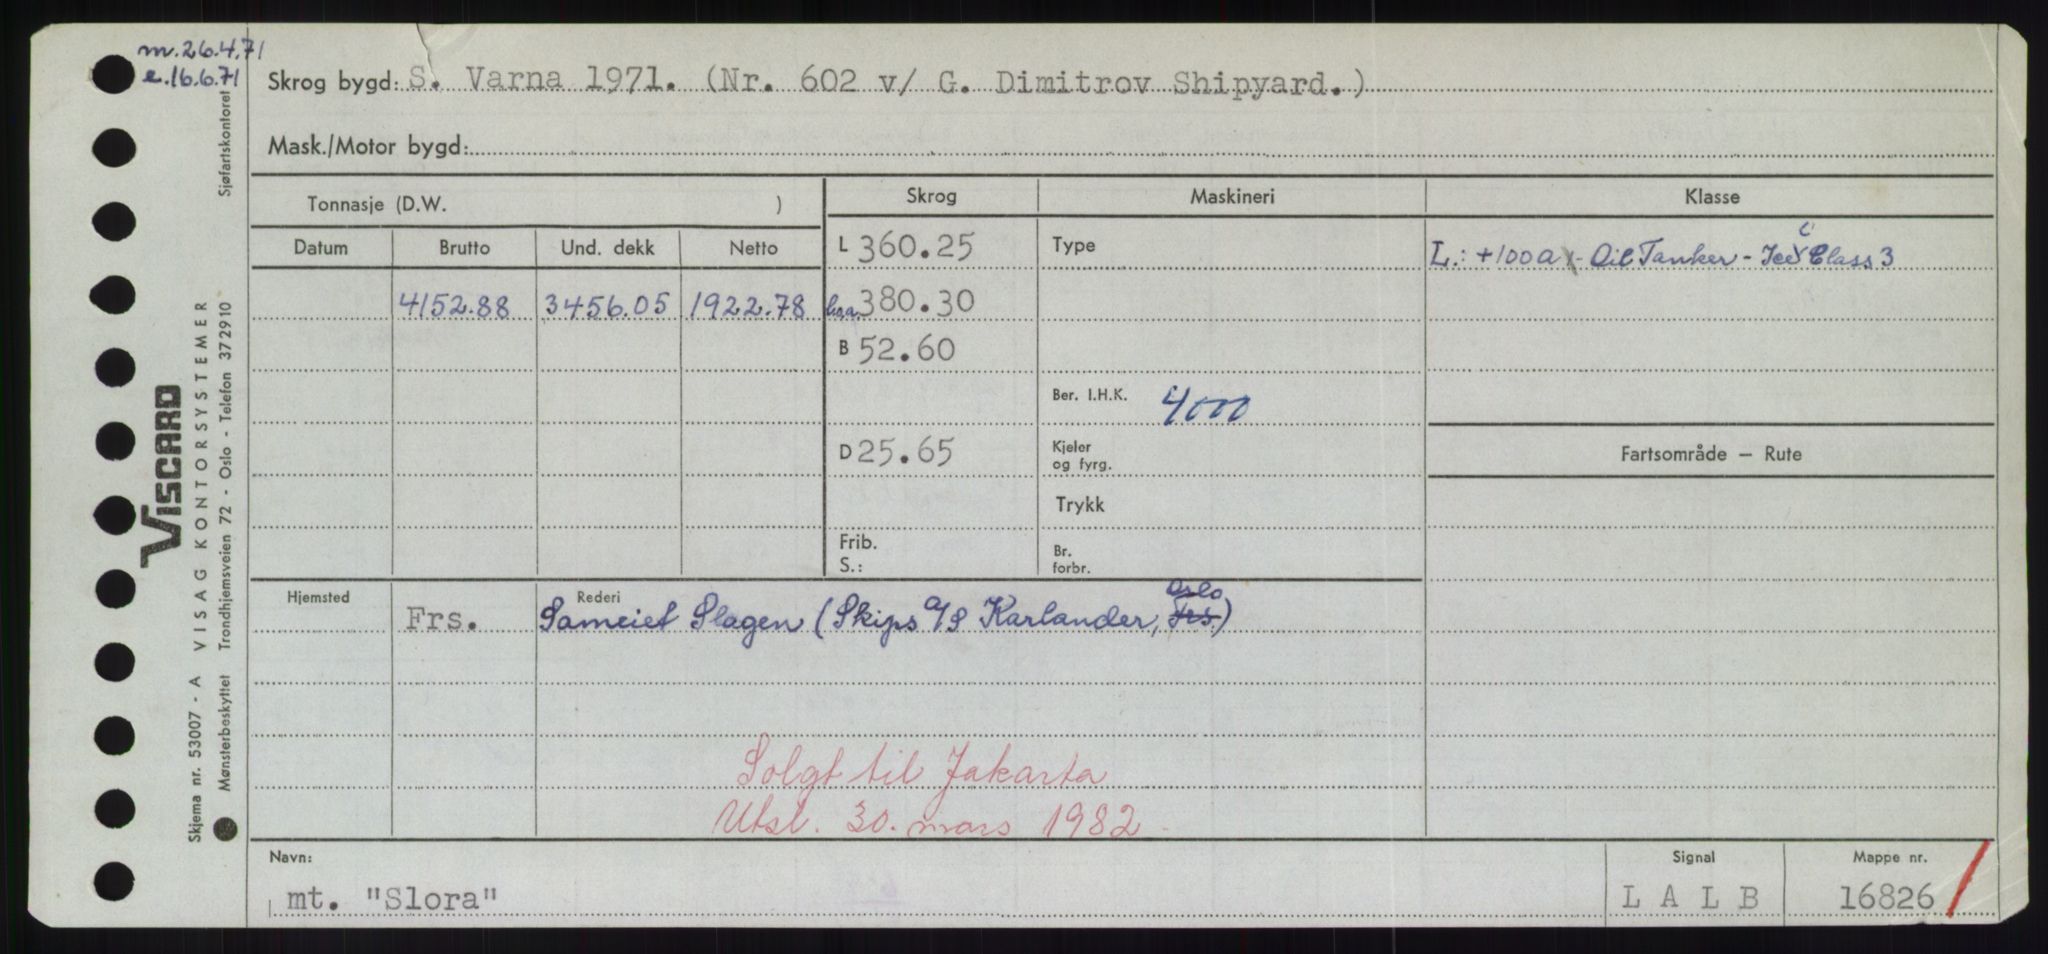 m.26.4.71
e.16.6.71
Skrog bygd: S. Varna 1971. (Nr. 602 v/ G. Dimitrov Shipyard.)
Mask./Motor bygd:
Tonnasje (D.W. )
Skrog Maskineri Klasse
Datum Brutto Und. dekk Netto
L 360.25 Type
L.: +100A - Oil Tanker - Ice Class 3
4152.88 3456.05 1922.78 l.o.a. 380.30
B 52.60
Ber. I.H.K. 4000
D 25.65
Kjeler
og fyrg.
Fartsområde — Rute
Trykk
Frib.
S.:
Br.
forbr.
Hjemsted Rederi
Oslo
Frs. Sameiet Slagen (Skips A/S Karlander, Frs.)
Solgt til Jakarta
Utsl. 30. mars 1982
Navn: Signal Mappe nr.
mt. "Slora" L A L B 16826
Skjema nr. 53007 - A VISAG KONTORSYSTEMER
VISCARD
Mønsterbeskyttet Trondhjemsveien 72 - Oslo - Telefon 37 29 10
Sjøfartskontoret